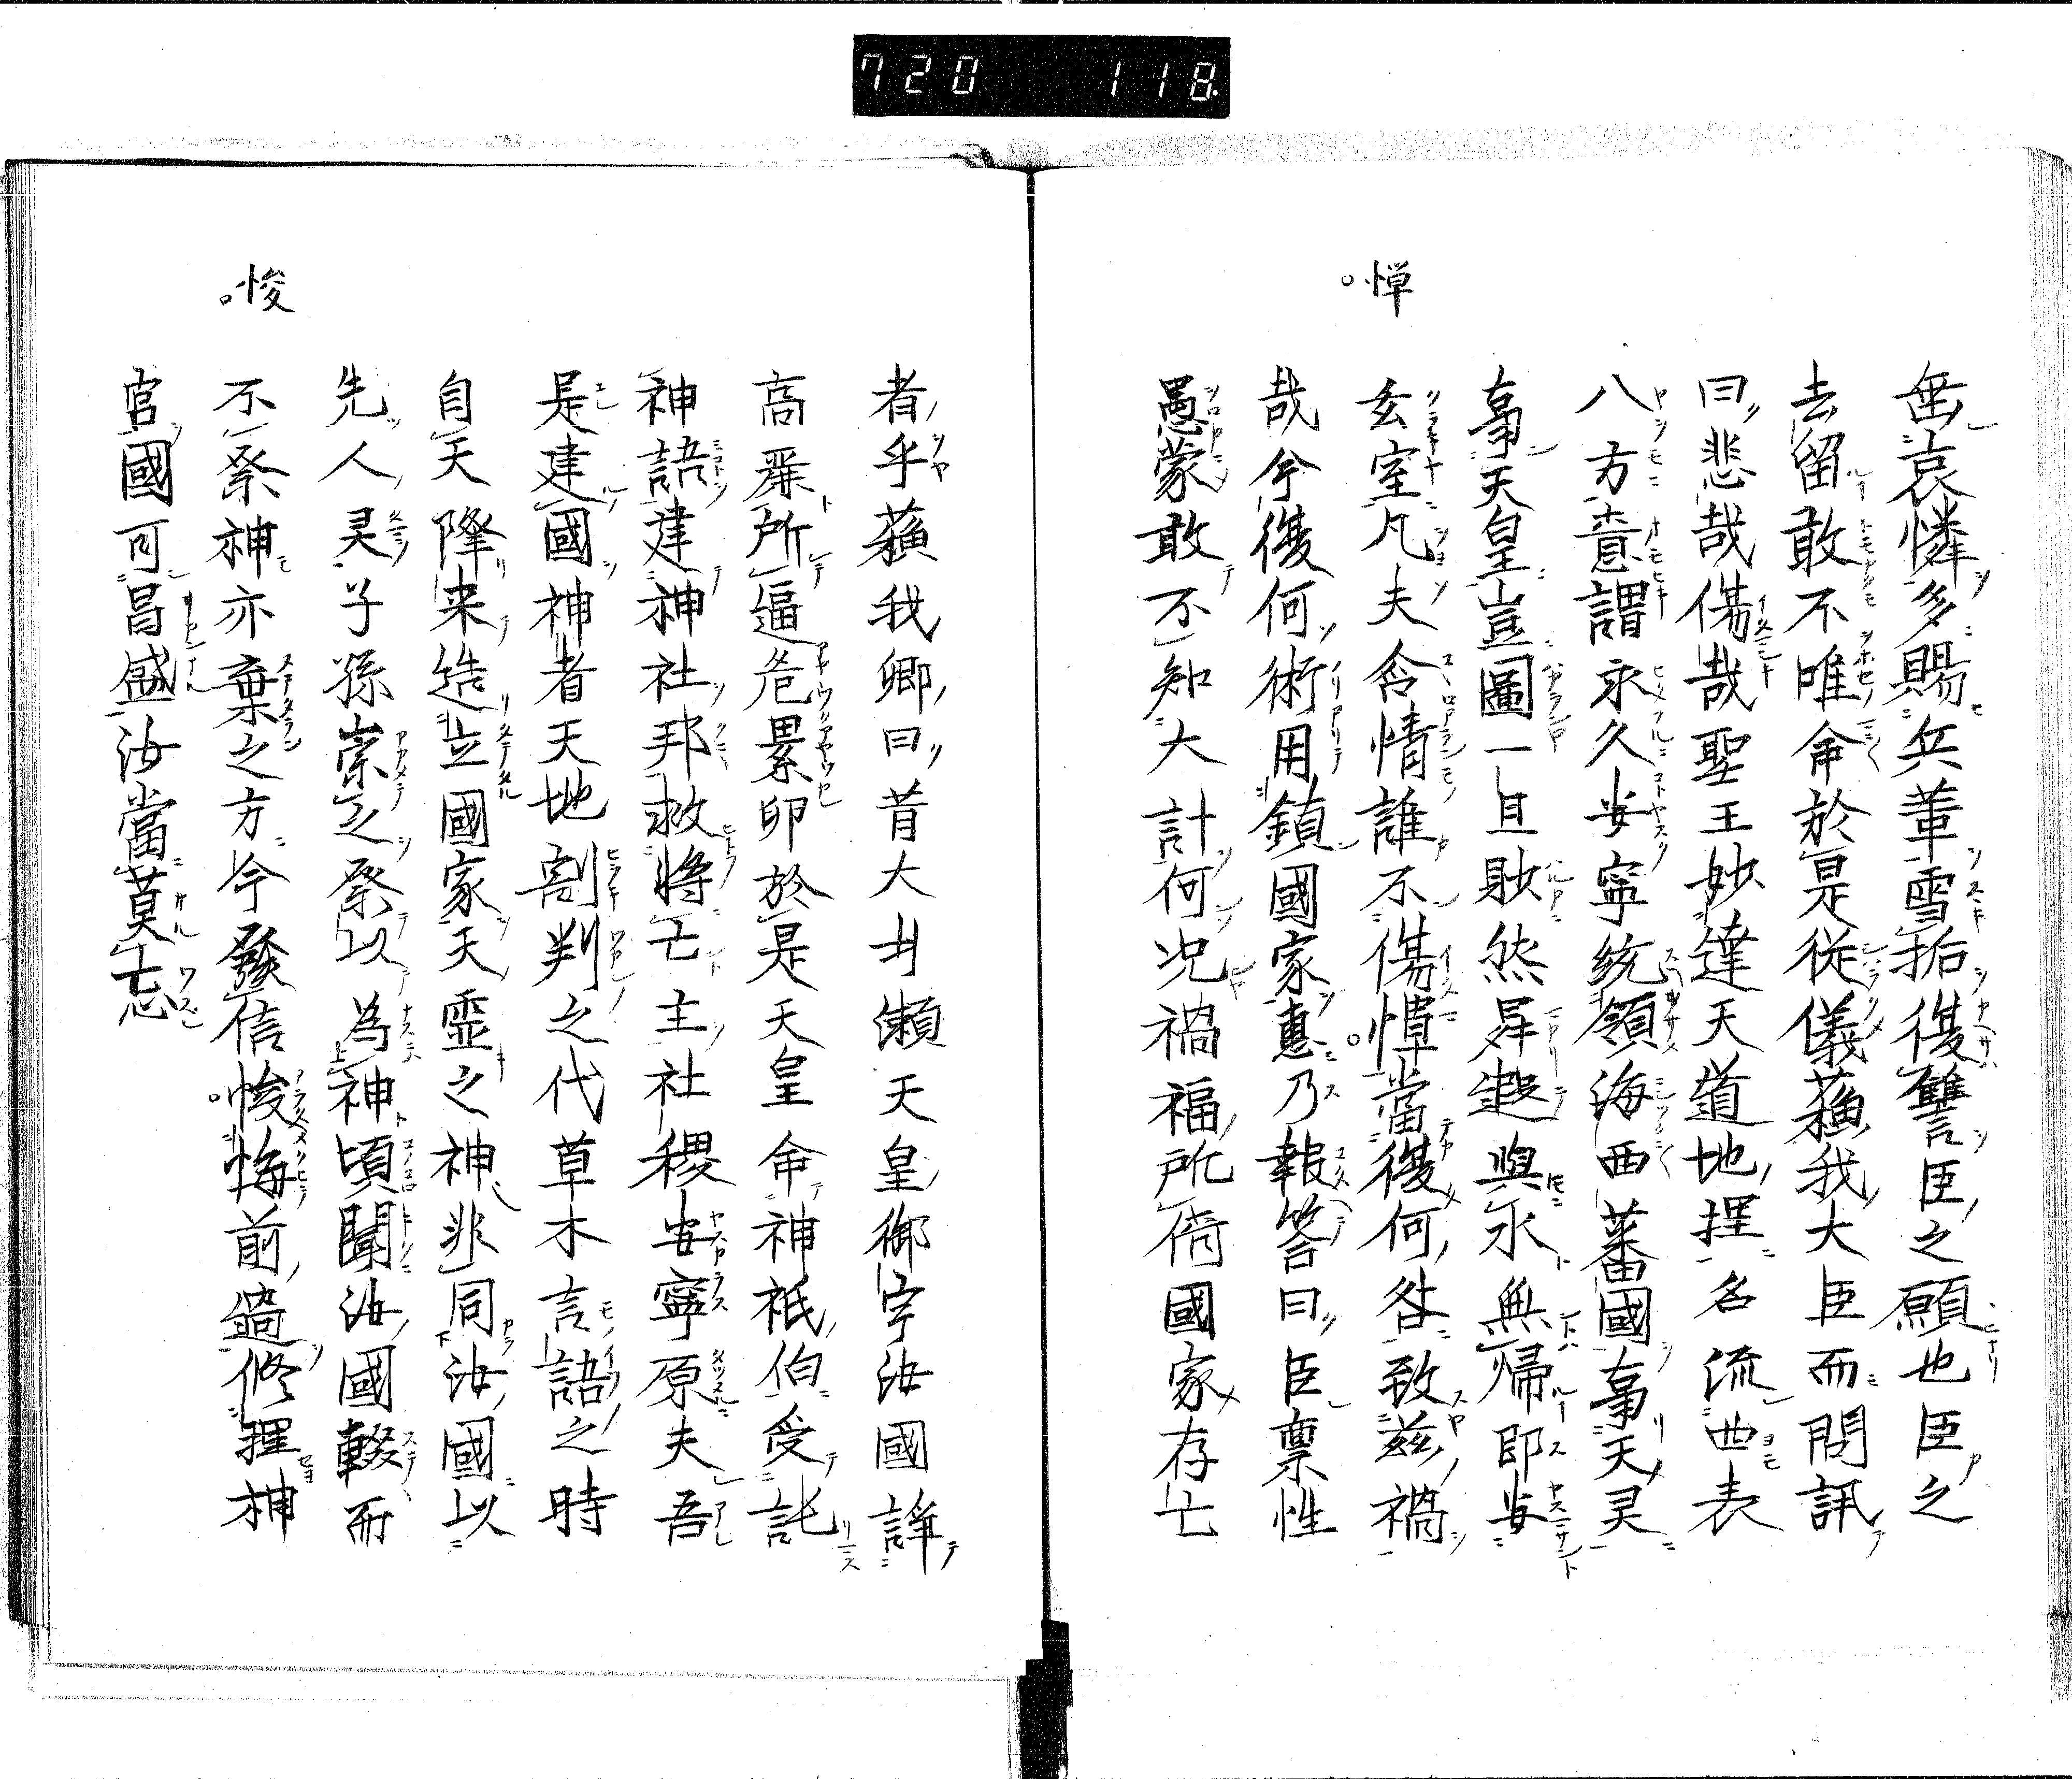 720 118
垂哀憐多賜兵革雪垢復讐臣之願也臣之
去留敢不唯命於是從儀蘓我大臣而問訊
曰悲哉傷哉聖王妙達天道地理名流四表
八方意謂永久安寧統領海西蕃國事天灵
事天皇豈圖一旦䀠然昇遐與水無歸即安
玄室凡夫含情誰不傷悼當復何咎致茲禍
哉今復何術用鎮國家惠乃報答曰臣禀性
愚蒙敢不知大計何况禍福所倚國家存亡
憚
者乎蘓我卿曰昔大丬瀬天皇御宇汝國諱
高麗所逼危累卵於是天皇命神祇伯受託
神語建神社邦救將亡主社稷安寧原夫吾
是建國神者天地割判之代草木言語之時
自天降来造立國家天霊之神非同汝國以
先人灵子孫崇之祭以為神頃聞汝國輟而
不祭神亦棄之方今發信悛悔前過修理神
宮國可昌盛汝當莫忘
悛